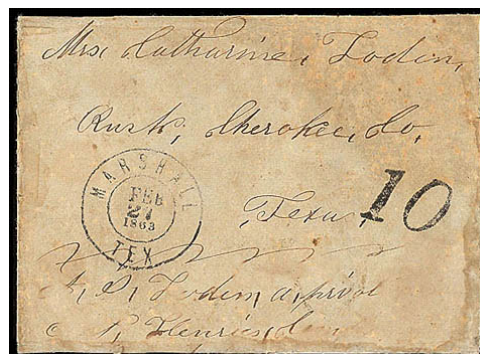 Mrs Catharine Loden,
Rusk, Cherokee, Co,
MARSHALL
FEB
27
1863
TEX
Texas
10
Loden, a